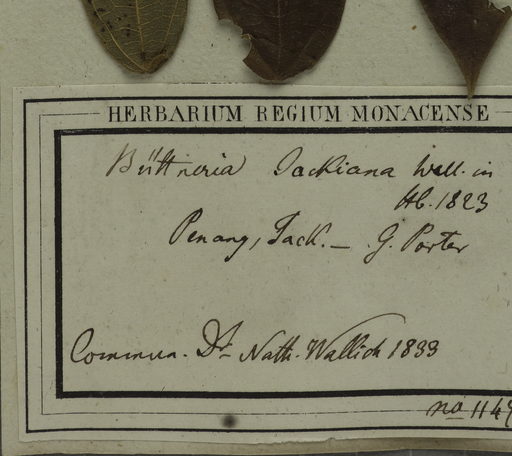 HERBARIUM REGIUM MONACENSE
Büttneria Jackiana Wall. in
Hb. 1823
Penang, Jack. — G. Porter
Commun. Dr. Nath. Wallich 1833
no 114